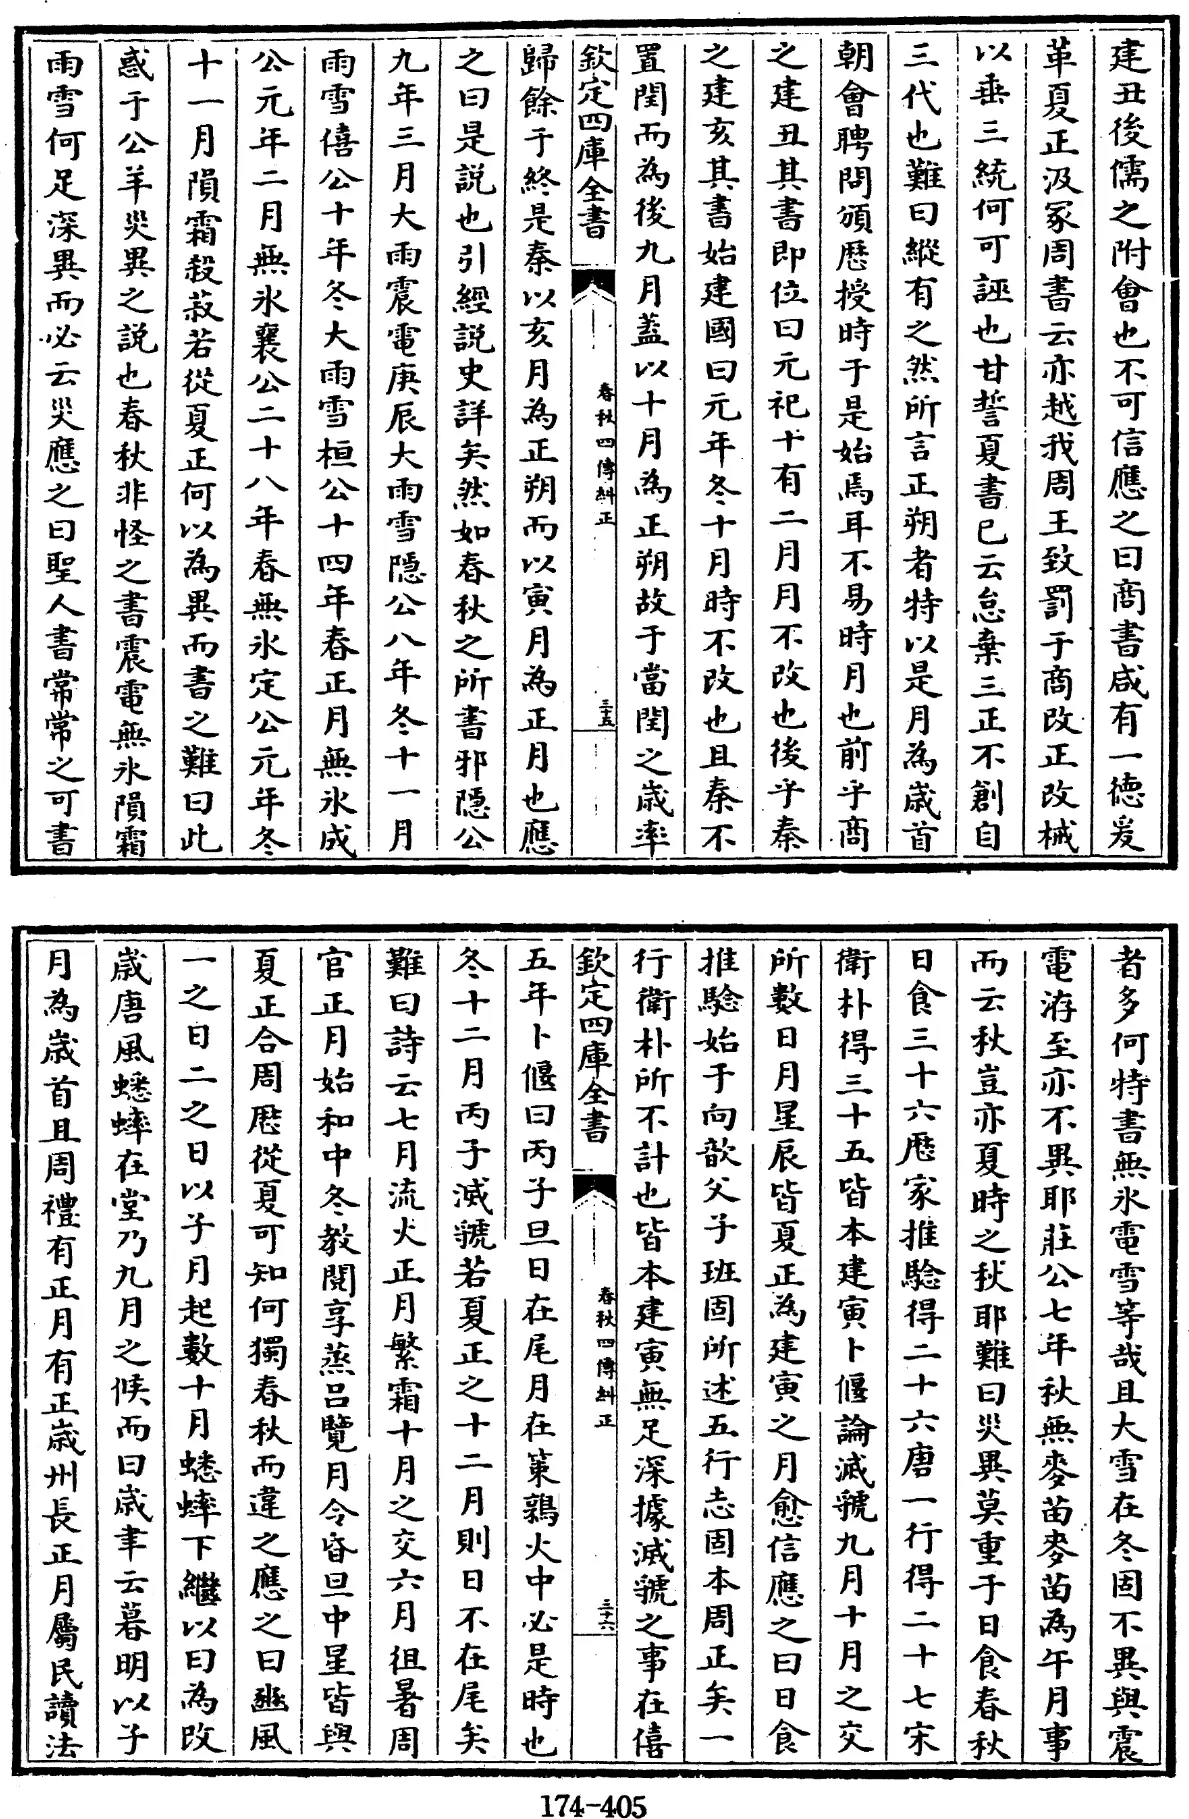 建丑後儒之附會也不可信應之曰商書咸有一德爰
革夏正汲冢周書云亦越我周王致罰于商改正改械
以垂三統何可誣也甘誓夏書已云怠棄三正不創自
三代也難曰縱有之然所言正朔者特以是月為歳首
朝會聘問頒歷授時于是始焉耳不易時月也前乎商
之建丑其書即位曰元祀十有二月月不改也後乎秦
之建亥其書始建國曰元年冬十月時不改也且秦不
置閏而為後九月葢以十月為正朔故于當閏之歳率
欽定四庫全書
春秋四傳糾正
三十五
歸餘于終是秦以亥月為正朔而以寅月為正月也應
之曰是説也引經説史詳矣然如春秋之所書邪隱公
九年三月大雨震電庚辰大雨雪隱公八年冬十一月
雨雪僖公十年冬大雨雪桓公十四年春正月無氷成
公元年二月無氷襄公二十八年春無氷定公元年冬
十一月隕霜殺菽若從夏正何以為異而書之難曰此
惑于公羊災異之説也春秋非怪之書震電無氷隕霜
雨雪何足深異而必云災應之曰聖人書常常之可書
者多何特書無氷電雪等哉且大雪在冬固不異與震
電洊至亦不異耶莊公七年秋無麥苗麥苗為午月事
而云秋豈亦夏時之秋耶難曰災異莫重于日食春秋
日食三十六歴家推驗得二十六唐一行得二十七宋
衛朴得三十五皆本建寅卜偃論滅虢九月十月之交
所數日月星辰皆夏正為建寅之月愈信應之曰日食
推驗始于向歆父子班固所述五行志固本周正矣一
行衛朴所不計也皆本建寅無足深據滅虢之事在僖
欽定四庫全書
春秋四傳糾正
三十六
五年卜偃曰丙子旦日在尾月在䇿鶉火中必是時也
冬十二月丙子滅虢若夏正之十二月則日不在尾矣
難曰詩云七月流火正月繁霜十月之交六月徂暑周
官正月始和中冬教閲享蒸吕覽月令昏旦中星皆與
夏正合周歴從夏可知何獨春秋而違之應之曰豳風
一之日二之日以子月起數十月蟋蟀下繼以曰為改
歳唐風蟋蟀在堂乃九月之候而曰歳聿云暮明以子
月為歳首且周禮有正月有正歳州長正月屬民讀法
174-405